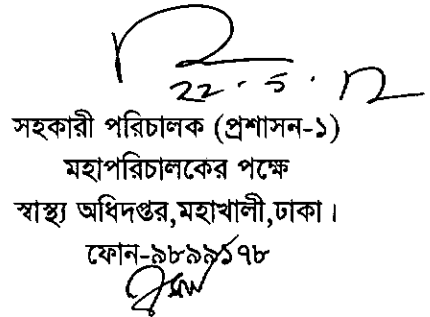 22.5.12
সহকারী পরিচালক (প্রশাসন-১)
মহাপরিচালকের পক্ষে
স্বাস্থ্য অধিদপ্তর,মহাখালী,ঢাকা।
ফোন-৯৮৯৯১৭৮